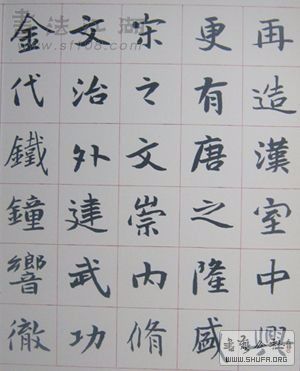 再造漢室中興
更有唐之隆盛
宋之文崇内脩
文治外達武功
金代鐵鐘響徹
書法江湖
www.sf108.com
WWW.SHUFA.ORG